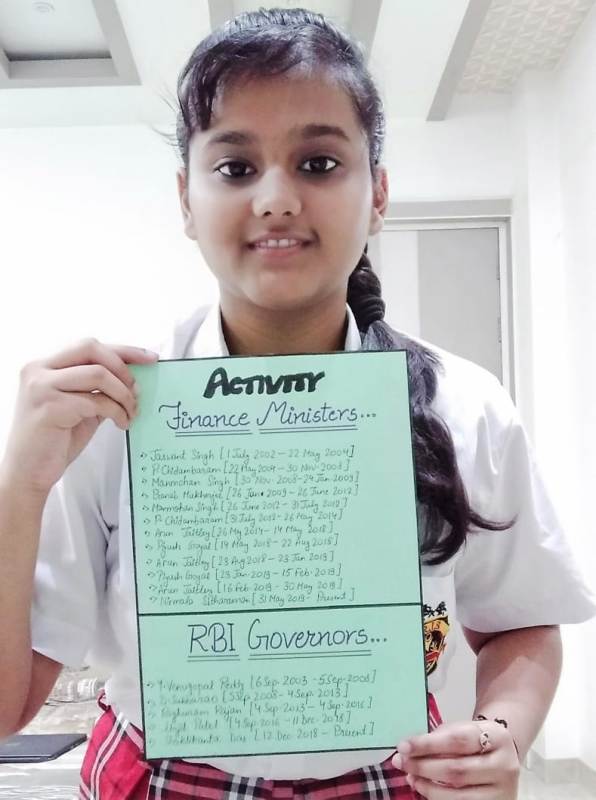 ACTIVITY
Finance Ministers...
→ Jaswant Singh [1 July 2002 – 22 May 2004]
→ P. Chidambaram [22 May 2004 – 30 Nov. 2008]
→ Manmohan Singh [30 Nov. 2008 – 24 Jan 2009]
→ Pranab Mukherjee [26 Jan. 2009 – 26 June 2012]
→ Manmohan Singh [26 June 2012 – 31 July 2012]
→ P. Chidambaram [31 July 2012 – 26 May 2014]
→ Arun Jaitley [26 May 2014 – 14 May 2018]
→ Piyush Goyal [14 May 2018 – 22 Aug 2018]
→ Arun Jaitley [23 Aug 2018 – 23 Jan 2019]
→ Piyush Goyal [23 Jan. 2019 – 15 Feb. 2019]
→ Arun Jaitley [16 Feb. 2019 – 30 May 2019]
→ Nirmala Sitharaman [31 May 2019 – Present]
RBI Governors...
→ Y. Venugopal Reddy [6 Sep. 2003 – 5 Sep. 2008]
→ D. Subbarao [5 Sep 2008 – 4 Sep. 2013]
→ Raghuram Rajan [4 Sep. 2013 – 4 Sep. 2016]
→ Urjit Patel [4 Sep. 2016 – 11 Dec. 2018]
→ Shaktikanta Das [12 Dec. 2018 – Present]